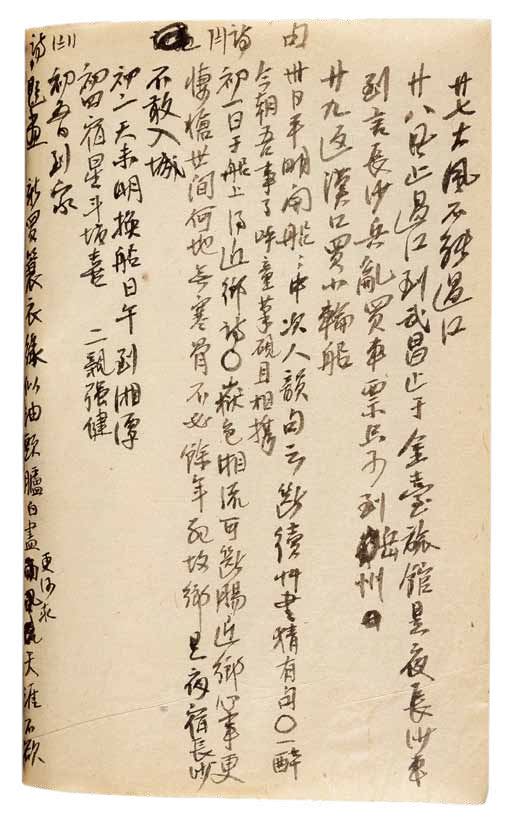 廿七大風不能過江
廿八風止過江到武昌止于金臺旅館是夜長沙車
到言長沙兵亂買車票只可到岳州
廿九返漢口買小輪船
由
卅日平明開船〻中次人韻句云斷續艸書猶有句〇一醉
今朝吾事了呼童筆硯且相攜
詩(一)
初一日于船上得近鄉詩〇嶽色湘流可斷腸近鄉心事更
悽愴世間何地無寒骨不必餘年死故鄉 是夜宿長沙
不敢入城
初二天未明換船日午到湘潭
初四宿星斗塘喜 二親強健
初五日到家
詩(二)
題畫 新買簑衣緣以油頭臚白盡更何求天涯不欲